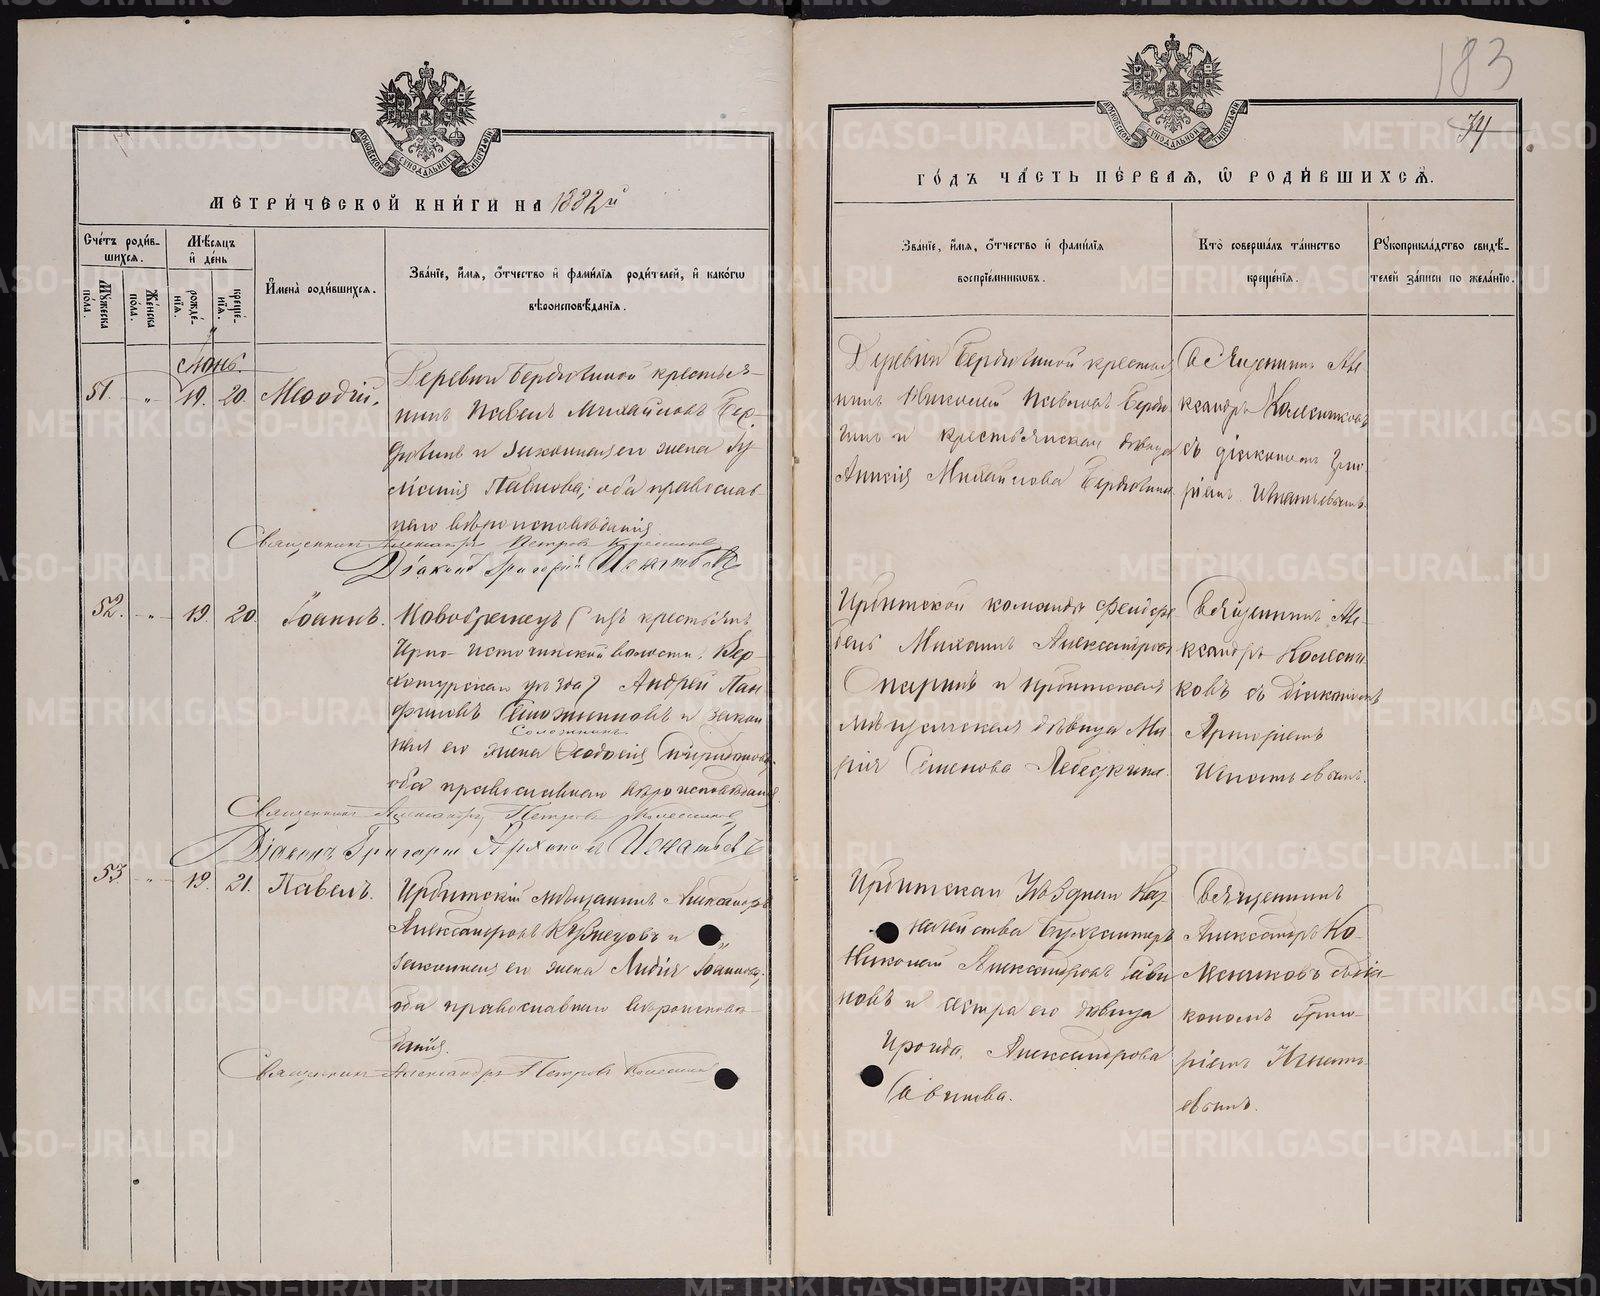 183
34
МЕТРИ́ЧЕСКОЙ КНИ́ГИ НА 1882й
ГО́ДЪ ЧА́СТЬ ПЕ́РВАЯ, Ѡ РОДИ́ВШИХСЯ.
Сче́тъ роди́в-
шихся.
Му́жеска по́ла.
Же́нска по́ла.
Мѣсяцъ
и день
рожде́-
нїя.
креще́-
нїя.
И҆мена̀ роди́вшихся.
Зва́нїе, и҆́мя, ѻ҆́тчество и҆ фами́лїя роди́телей, и҆ како́гѡ
вѣроисповѣ́данїя.
Зва́нїе, и҆́мя, ѻ҆́тчество и҆ фами́лїя
воспрїе́мниковъ.
Кто̀ соверша́лъ та́инство
креще́нїя.
Рꙋкоприкла́дство свидѣ́-
телей за́писи по жела́нїю.
Іюнь.
51. " 19. 20. Меѳодій.
Деревни Бердюгиной крестья-
нинъ Павелъ Михайловъ Бер-
дюгинъ и законная его жена
Павлова, оба православ-
наго вѣроисповѣданія.
Священникъ Александръ Петровъ Колесниковъ
Діаконъ Григорій Игнатьевъ
Деревни Бердюгиной крестья
нинъ Николай Павловъ Бердю
гинъ и крестьянская дѣвица
Анисія Михайлова Бердюгина
Священникъ Але-
ксандръ Колесниковъ
съ діакономъ Григо
ріемъ Игнатьевымъ.
52. " 19. 20. Іоаннъ.
Новобранецъ (изъ крестьянъ
волости, Вер-
хотурскаго уѣзда) Андрей Пан
филовъ и закон
ная его жена Ѳеодосія Спиридонова,
оба православнаго вѣроисповѣданія
Священникъ Александръ Петровъ Колесниковъ
Діаконъ Григорій Игнатьевъ
Ирбитской команды фельдфе
бель Михаилъ Александровъ
и Ирбитская
мѣщанская дѣвица Ма
рія Семенова Лебедкина.
Священникъ Але-
ксандръ Колесни
ковъ съ діакономъ
Григоріемъ
Игнатьевымъ.
53. " 19. 21. Павелъ.
Ирбитскій мѣщанинъ Александръ
Александровъ Кузнецовъ и
законная его жена Лидія Іоаннова,
оба православнаго вѣроисповѣ-
данія.
Священникъ Александръ Петровъ Колесниковъ
Ирбитскаго Уѣзднаго Каз
начейства Бухгалтеръ
Николай Александровъ Сави
новъ и сестра его дѣвица
Ираида Александрова
Савинова.
Священникъ
Александръ Ко-
лесниковъ съ діа-
кономъ Григо-
ріемъ Игнать
евымъ.
METRIKI.GASO-URAL.RU